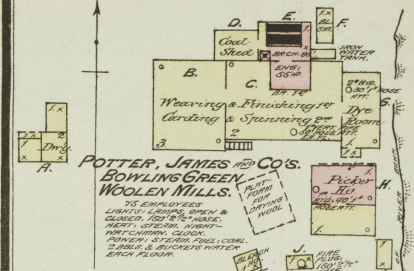 D.
E.
F.
1 x
BL.
SM.
Coal
Shed
IRON
WATER
TANK.
B.
C.
ENG:
55 HP.
G.
Weaving & Finishing 1st
Carding & Spinning 2nd
Dye
Room
3
2
1 x
2
1
Dwg.
A.
POTTER, JAMES AND CO'S.
BOWLING GREEN
WOOLEN MILLS.
75 EMPLOYEES
LIGHTS: LAMPS, OPEN &
CLOSED. 150' 2½" HOSE.
HEAT: STEAM. NIGHT-
WATCHMAN. CLOCK.
POWER: STEAM. FUEL: COAL.
2 BBLS. & BUCKETS WATER
EACH FLOOR.
PLAT-
FORM
FOR
DRYING
WOOL
Picker
Ho.
H.
BLEACH
J.